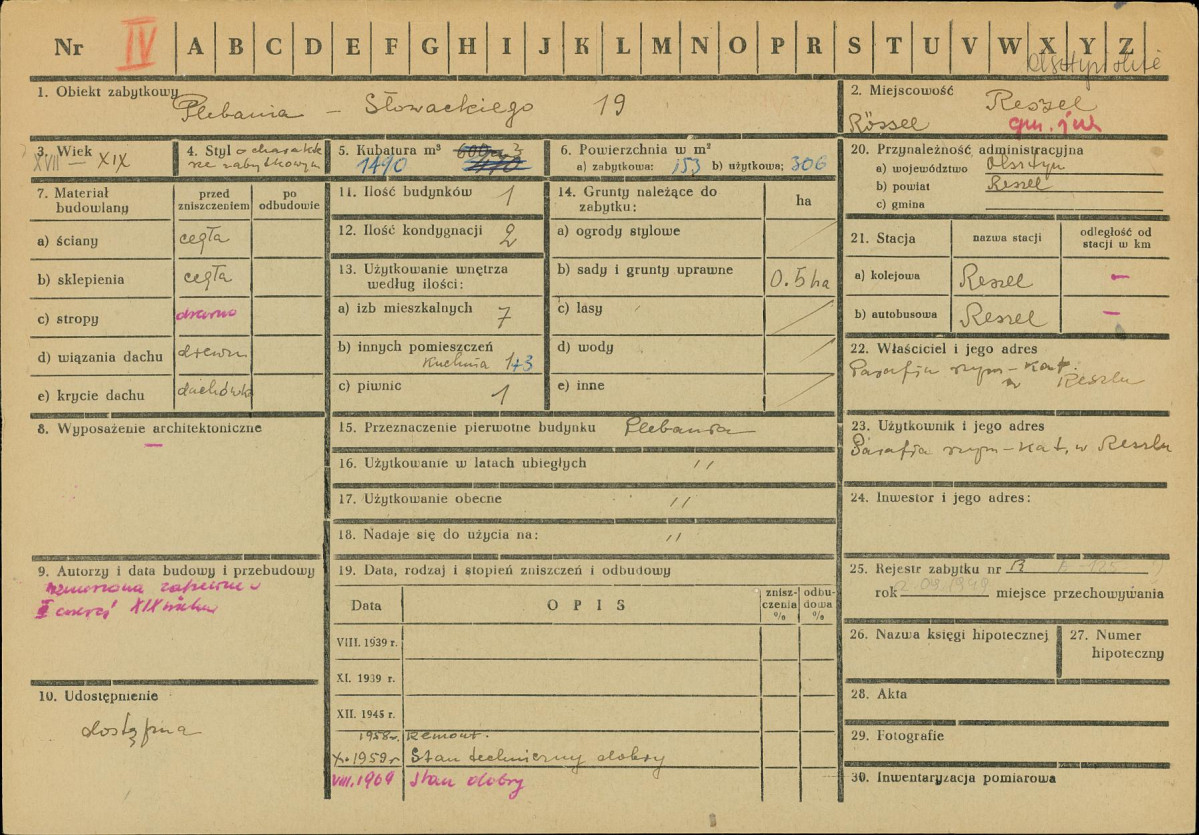 Nr IV A B C D E F G H I J K L M N O P R S T U V W X Y Z
olsztyńskie
1. Obiekt zabytkowy Plebania — Słowackiego 19
2. Miejscowość Reszel
Rössel gm. j.w.
3. Wiek XVII — XIX
4. Styl o charakte
rze zabytkowym
5. Kubatura m³
1490
6. Powierzchnia w m²
a) zabytkowa: 153 b) użytkowa; 306
7. Materiał budowlany
przed zniszczeniem
po odbudowie
a) ściany cegła
b) sklepienia cegła
c) stropy drewno
d) wiązania dachu drewn
e) krycie dachu dachówk
8. Wyposażenie architektoniczne
—
9. Autorzy i data budowy i przebudowy
wzniesiona zapewne w
II część XIX wieku
10. Udostępnienie
dostępna
11. Ilość budynków 1
12. Ilość kondygnacji 2
13. Użytkowanie wnętrza
według ilości:
a) izb mieszkalnych 7
b) innych pomieszczeń
Kuchnia 1+3
c) piwnic 1
14. Grunty należące do
zabytku: ha
a) ogrody stylowe
b) sady i grunty uprawne 0.5 ha
c) lasy
d) wody
e) inne
15. Przeznaczenie pierwotne budynku Plebania
16. Użytkowanie w latach ubiegłych //
17. Użytkowanie obecne //
18. Nadaje się do użycia na: //
19. Data, rodzaj i stopień zniszczeń i odbudowy
Data
OPIS
znisz-
czenia
%
odbu-
dowa
%
VIII. 1939 r.
XI. 1939 r.
XII. 1945 r.
1958r. Remont.
X. 1959 r Stan techniczny dobry
VIII. 1969 Stan dobry
20. Przynależność administracyjna
a) województwo Olsztyn
b) powiat Reszel
c) gmina
21. Stacja
nazwa stacji
odległość od
stacji w km
a) kolejowa Reszel —
b) autobusowa Reszel —
22. Właściciel i jego adres
Parafia rzym-kat.
w Reszlu
23. Użytkownik i jego adres
Parafia rzym-kat. w Reszlu
24. Inwestor i jego adres:
25. Rejestr zabytku nr B
rok 2.09.1949 miejsce przechowywania
26. Nazwa księgi hipotecznej
27. Numer
hipoteczny
28. Akta
29. Fotografie
30. Inwentaryzacja pomiarowa